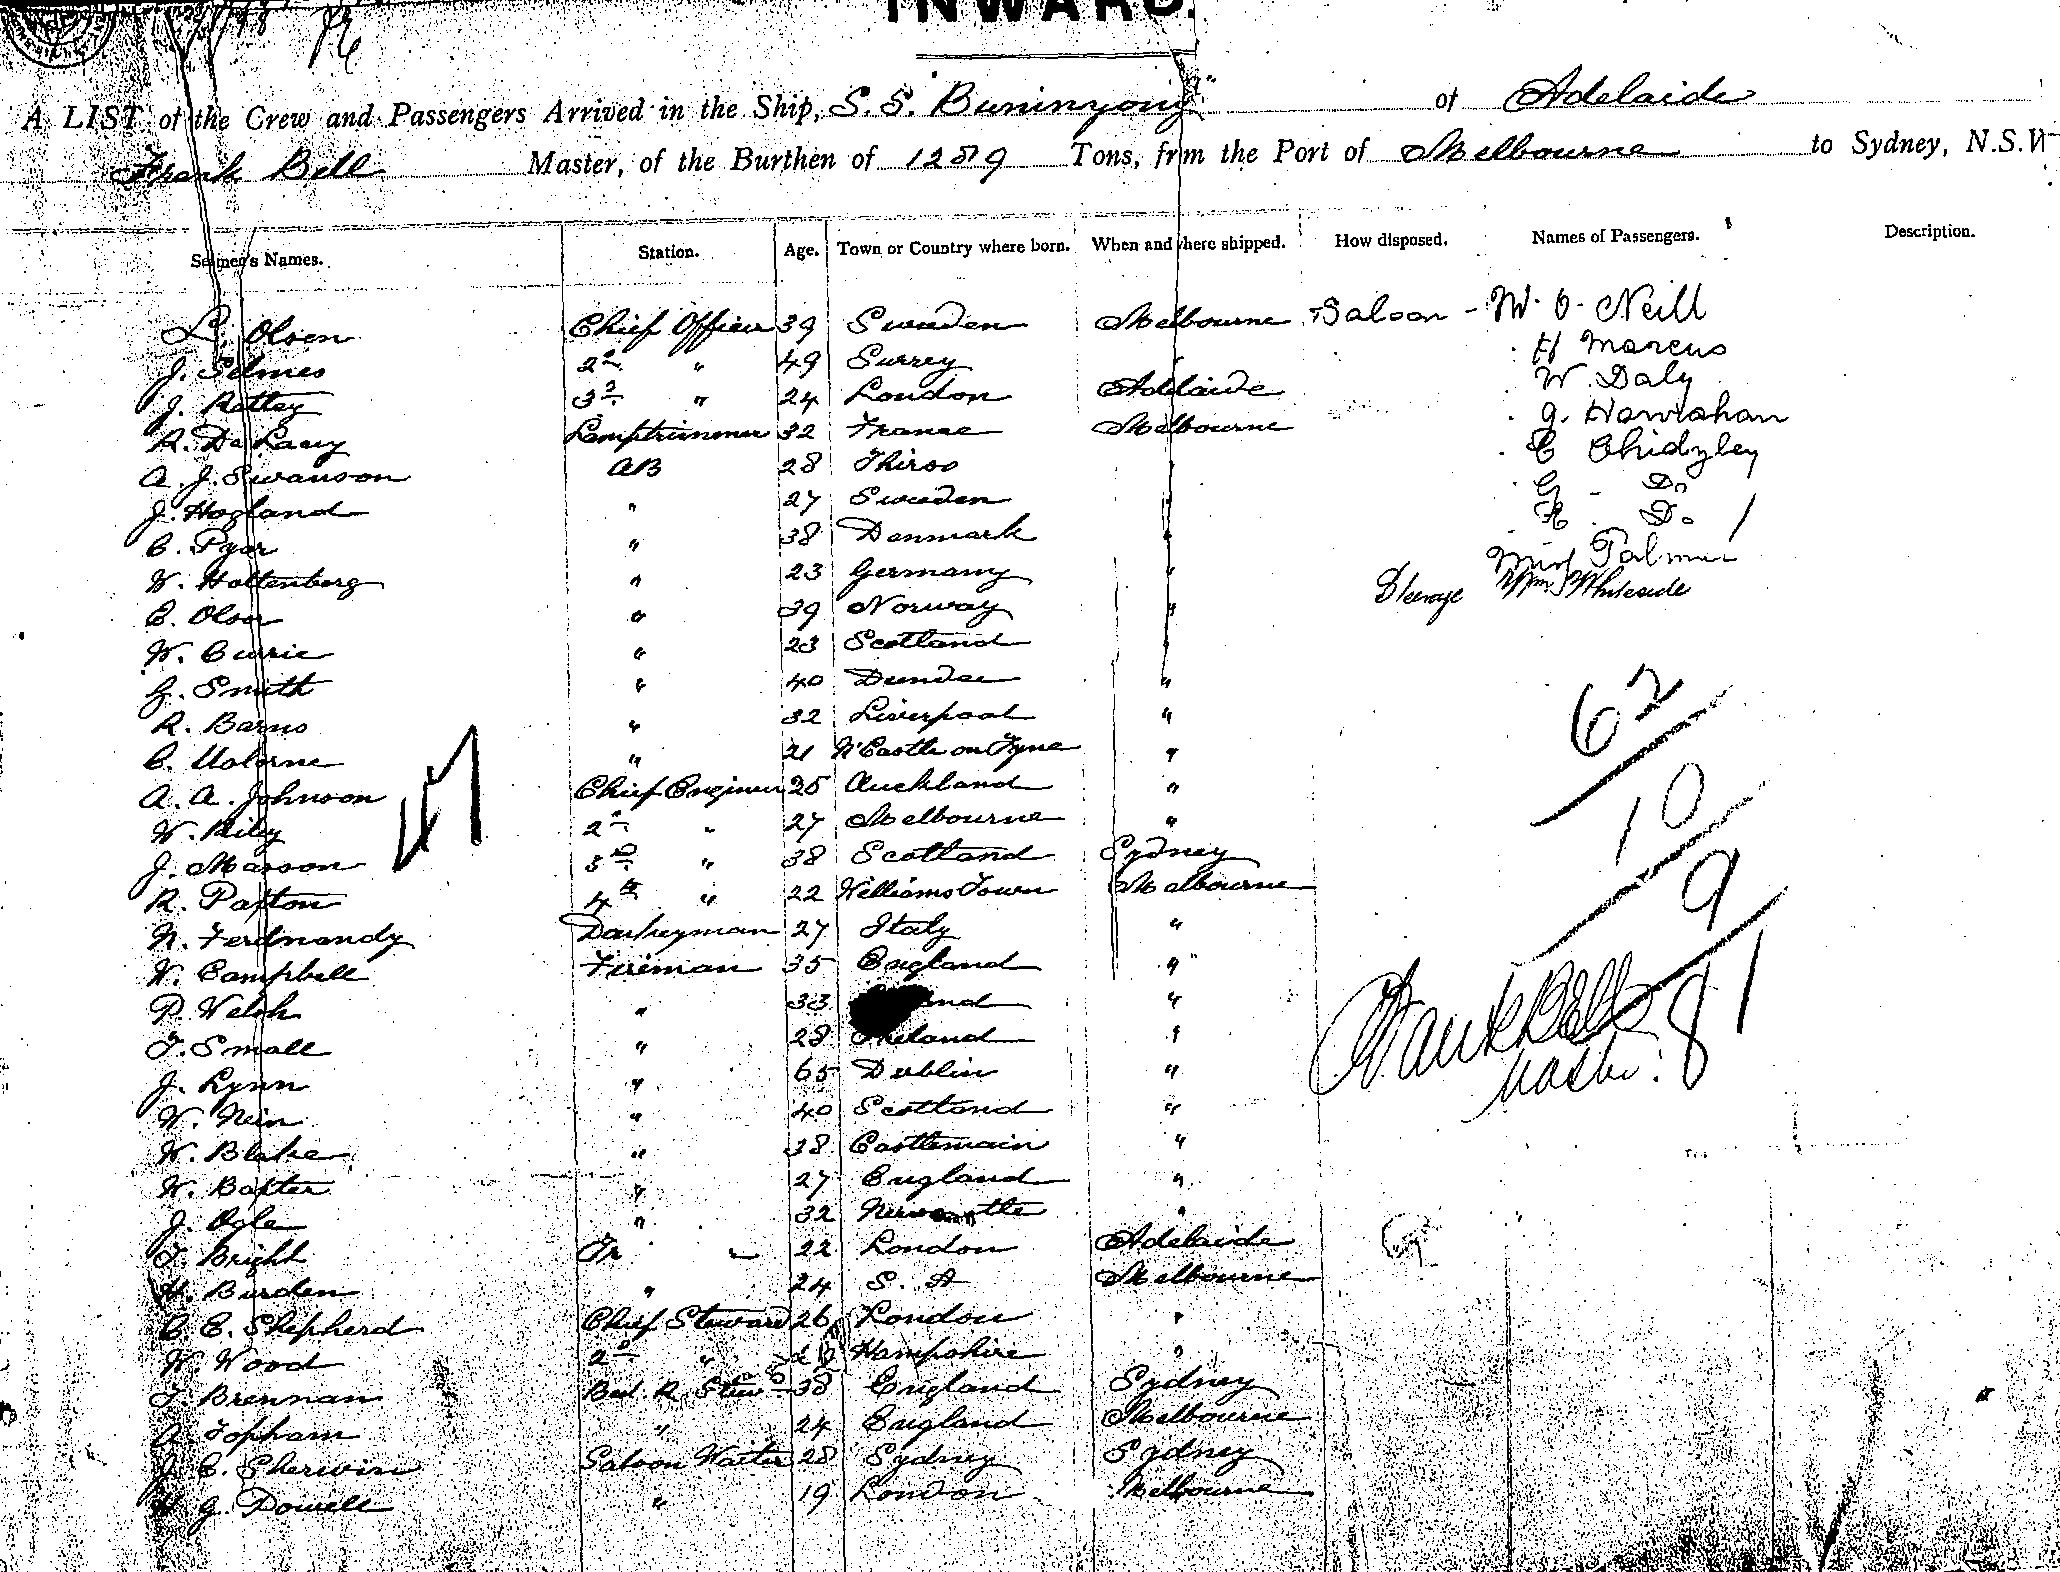 INWARD.
A LIST of the Crew and Passengers Arrived in the Ship, S.S. Buninyong" of Adelaide
Frank Bell Master, of the Burthen of 1289 Tons, from the Port of Melbourne to Sydney, N.S.W
Seamen's Names. Station. Age. Town or Country where born. When and where shipped. How disposed. Names of Passengers. Description.
L. Olsen Chief Officer 39 Sweden Melbourne Saloon - M. O. Neill
J. Selmes 2nd " 49 Surrey H Marcus
J. Rattey 3rd " 24 London Adelaide W. Daly
R. De Lacey Lamptrimmer 32 France Melbourne G. Hanrahan
A. J. Swanson AB 28 Thirso C Chidzley
J. Hogland " 27 Sweden " G - Do
C. Pyor " 38 Denmark " H. Do
W. Holtenberg " 23 Germany " Miss Palmer
C. Olsen " 39 Norway " Steerage Wm Whiteside
W. Currie " 23 Scotland
G. Smith " 40 Dundee " 62
R. Barns " 32 Liverpool "
C. " 21 N'Castle on Tyne "
A. A. Johnson Chief Engineer 25 Auckland " 10
W. Riley 2nd " 27 Melbourne "
47
J. Masson 3rd " 38 Scotland Sydney 9
R. Paxton 4th " 22 Williams Town Melbourne
N. Ferdnandy Donkeyman 27 Italy "
W. Campbell Fireman 35 England " 81
P. Welsh " 33 "
T. Small " 28 Ireland " Frank Bell
J. Lynn " 65 Dublin " Master
W. Nein " 40 Scotland "
W. Blake " 38 Castlemain "
W. Baxter " 27 England "
J. Ogle " 32 Newcastle "
T. Bright Tr " 22 London Adelaide
H. Burden " 24 S. A Melbourne
C. E. Shepherd Chief Steward 26 London "
W. Wood 2nd " Hampshire "
T. Brennan Bed. R. Stewd 38 England Sydney
A. Topham " 24 England Melbourne
J. C. Sherwin Saloon Waiter 28 Sydney Sydney
G. Dowell " 19 London Melbourne